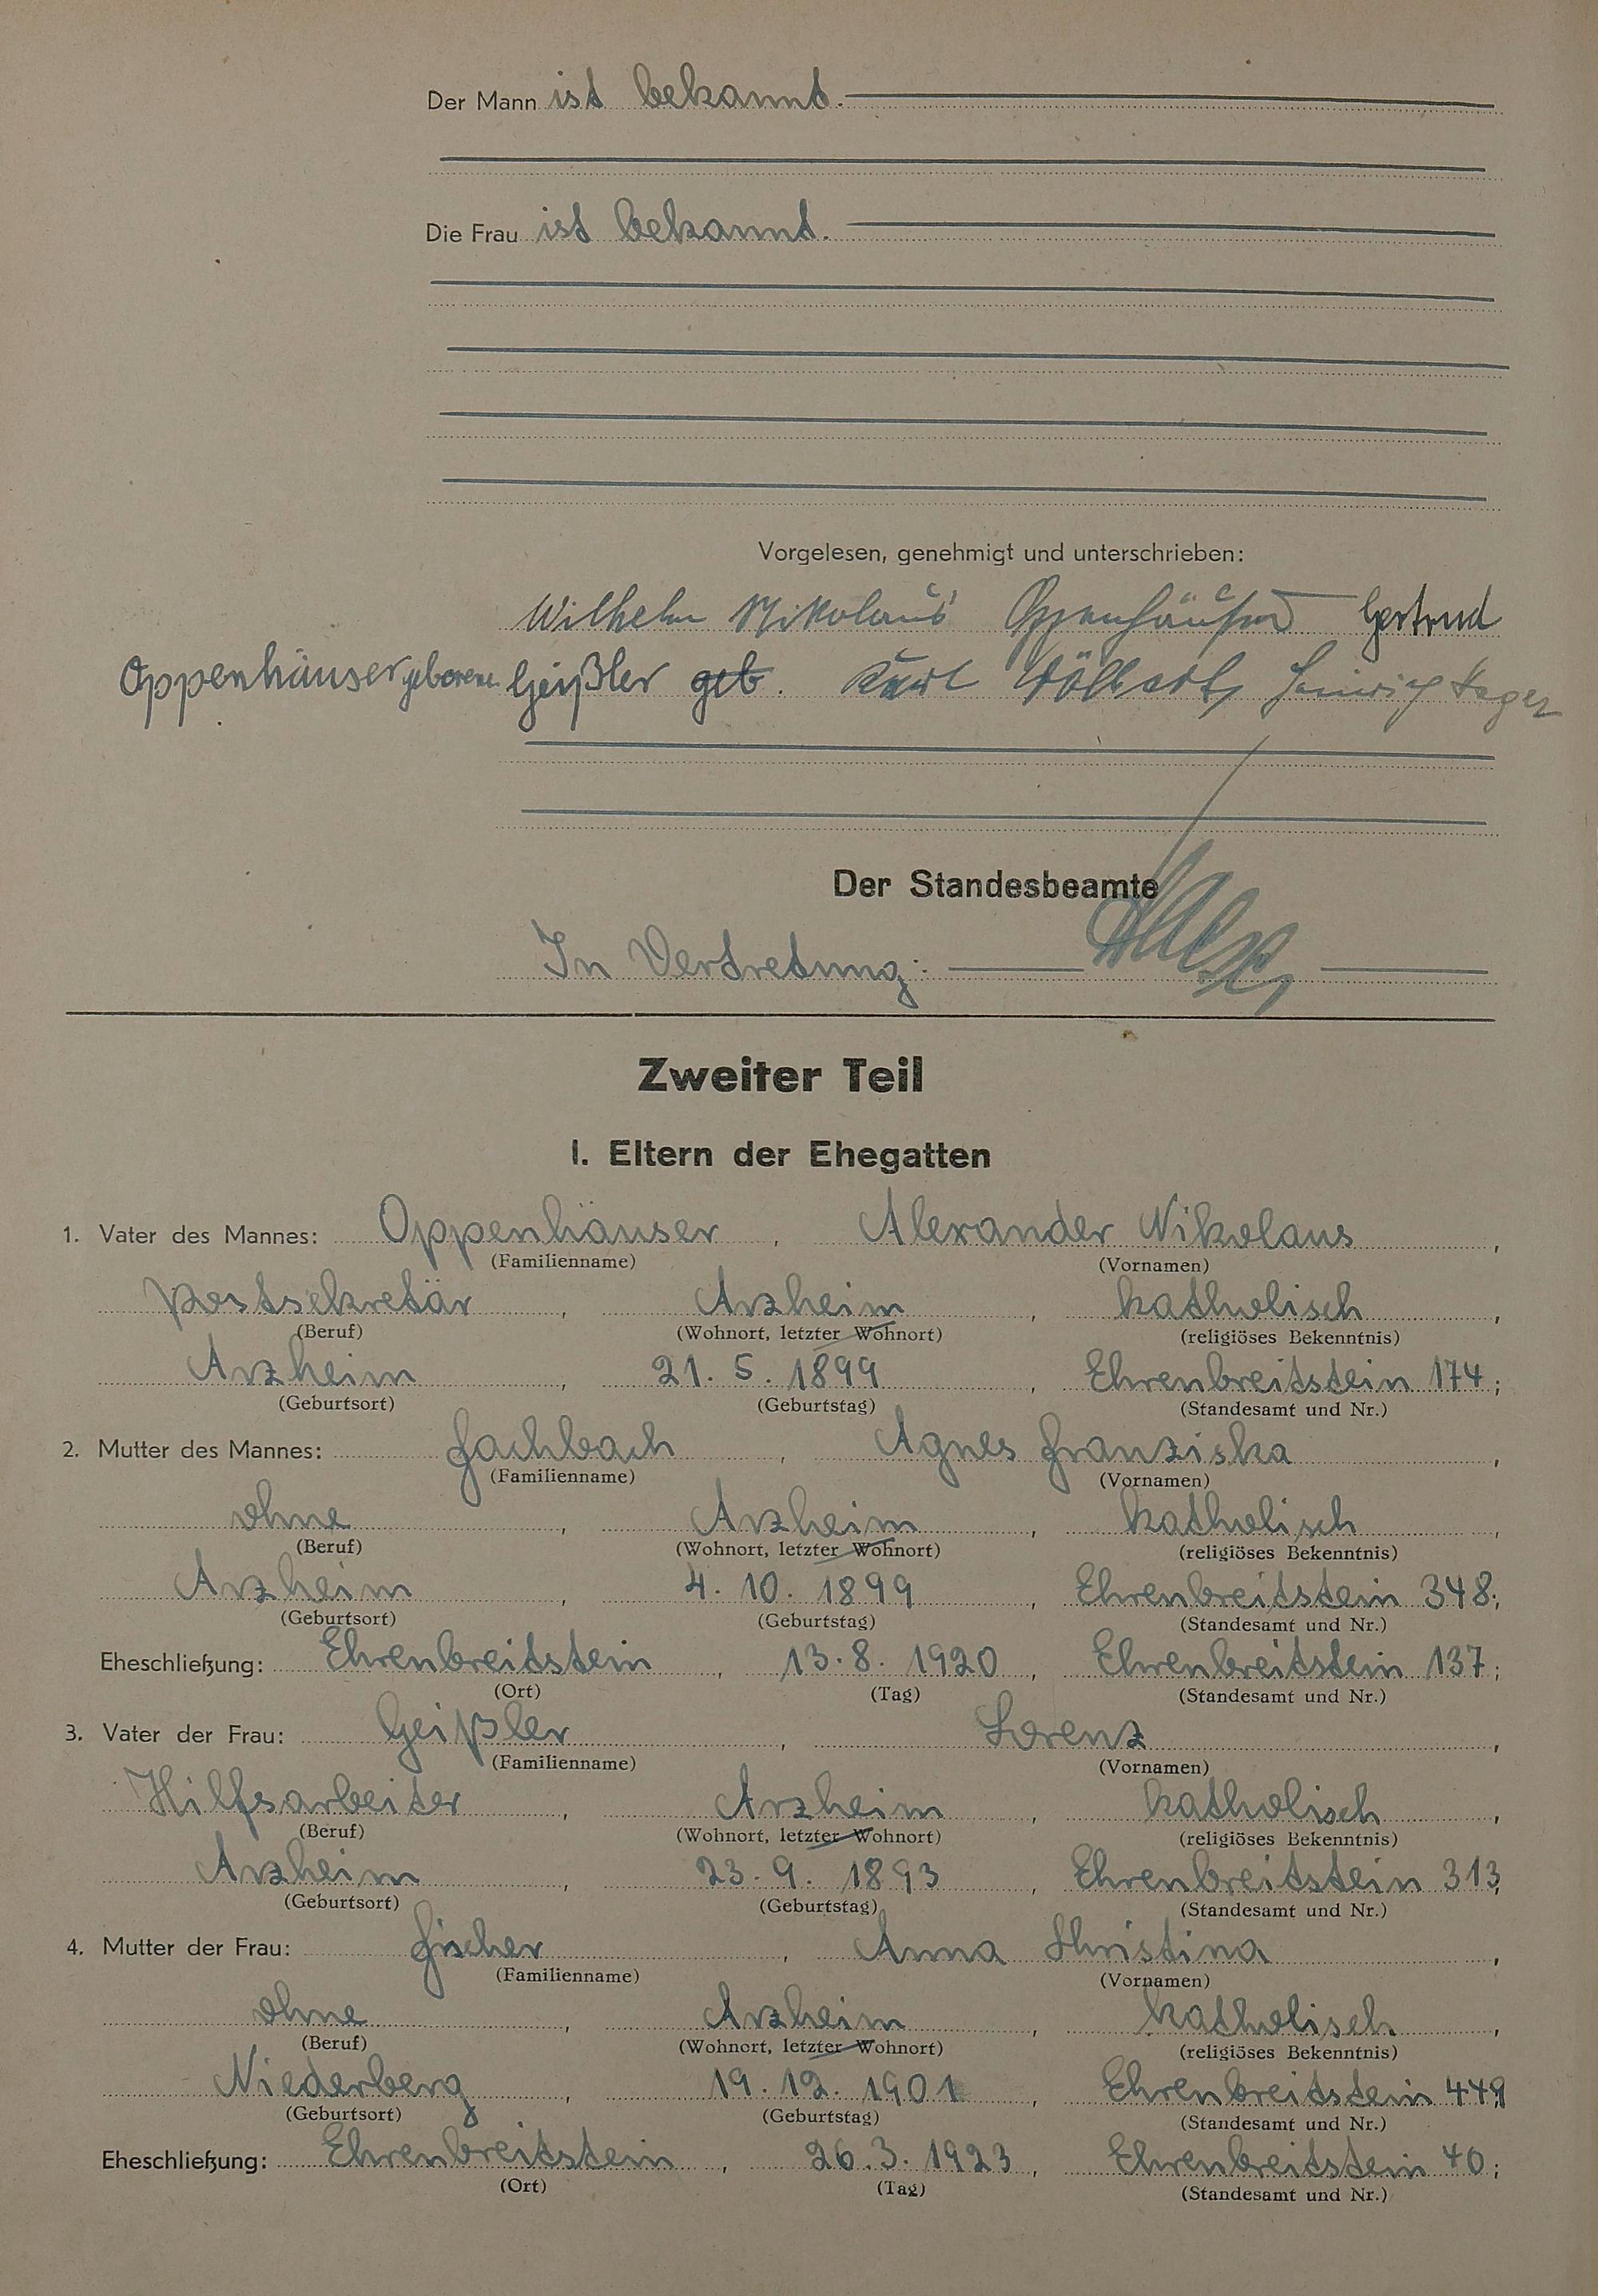 Der Mann ist bekannt.
Die Frau ist bekannt.
Vorgelesen, genehmigt und unterschrieben:
Wilhelm Nikolaus Oppenhäuser Gertrud
Oppenhäuser geborene Geißler geb. Karl
Der Standesbeamte
In Vertretung:
Zweiter Teil
I. Eltern der Ehegatten
1. Vater des Mannes: Oppenhäuser, Alexander Nikolaus,
(Familienname) (Vornamen)
Postsekretär, Arzheim, katholisch,
(Beruf) (Wohnort, letzter Wohnort) (religiöses Bekenntnis)
Arzheim, 21. 5. 1899, Ehrenbreitstein 174;
(Geburtsort) (Geburtstag) (Standesamt und Nr.)
2. Mutter des Mannes: Fachbach, Agnes Franziska,
(Familienname) (Vornamen)
ohne, Arzheim, katholisch,
(Beruf) (Wohnort, letzter Wohnort) (religiöses Bekenntnis)
Arzheim, 4. 10. 1899, Ehrenbreitstein 348;
(Geburtsort) (Geburtstag) (Standesamt und Nr.)
Eheschließung: Ehrenbreitstein, 13. 8. 1920, Ehrenbreitstein 137;
(Ort) (Tag) (Standesamt und Nr.)
3. Vater der Frau: Geißler, Lorenz,
(Familienname) (Vornamen)
Hilfsarbeiter, Arzheim, katholisch,
(Beruf) (Wohnort, letzter Wohnort) (religiöses Bekenntnis)
Arzheim, 23. 9. 1893, Ehrenbreitstein 313;
(Geburtsort) (Geburtstag) (Standesamt und Nr.)
4. Mutter der Frau: Fischer, Anna Christina,
(Familienname) (Vornamen)
ohne, Arzheim, katholisch,
(Beruf) (Wohnort, letzter Wohnort) (religiöses Bekenntnis)
Niederberg, 19. 12. 1901, Ehrenbreitstein 449;
(Geburtsort) (Geburtstag) (Standesamt und Nr.)
Eheschließung: Ehrenbreitstein, 26. 3. 1923, Ehrenbreitstein 40;
(Ort) (Tag) (Standesamt und Nr.)